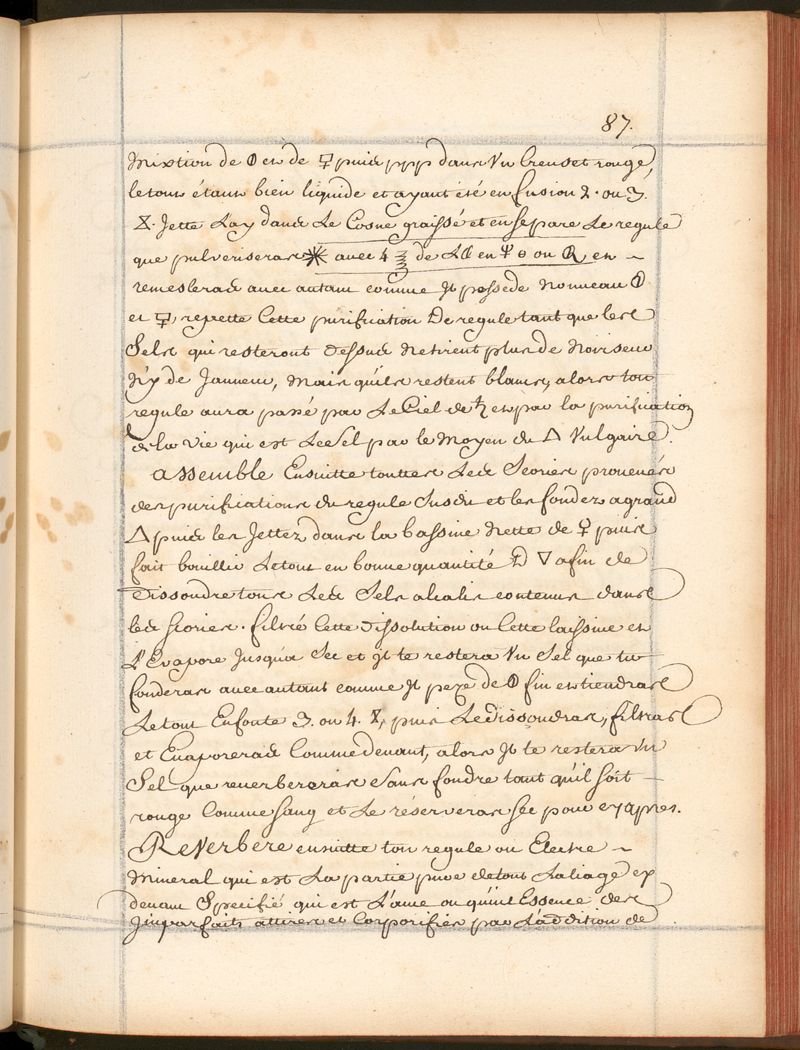 87.
Mixtion de 🜕 et de 🜿 puis ppp dans Vn Creuset rougé,
le tout étant bien liquide et ayant été en fusion 2. ou 3.
X. Jette Lay dans Le Cosne graissé et en separe Le regule
que pulveriseras avec 4 de en ou en ~
remesleras avec autant comme Jl possede nouveau 🜕
et 🜿, repette Cette purification De regule tant que les
Sels qui resteront dessus ne tirent plus de Noirseur
Ny de Jauneur, Mais qu'ils restent blancs, alors ton
regule aura passé par Le Ciel de ♄ et par la purification
de la vie qui est Le Sel par le Moyen du △ Vulgaire.
assemble Ensuitte touttes Les Scories provenés
des purifications du regule Susdit et les fondez a grand
△ puis les Jettez dans la bassine nette de ♀ puis
fait bouillir Le tout en bonne quantité D ▽ afin de
Dissoudre tous Les Sels alcalis contenus dans
les scories. filtré Cette dissolution ou Cette laissive et
L'Evapore Jusqu'a Sec et Jl te restera Vn Sel que tu
fonderas avec autant comme Jl peze de 🜕 fin et tiendras
Le tout En fonte 3. ou 4. X, puis Le dissoudras, filtras
et Evaporeras Comme devant, alors Jl te restera Vn
Sel que reverbereras Sans fondre tant qu'il soit —
rouge Comme sang et Le réserveras sec pour cy apres.
Reverbere ensuitte ton regule ou Electre ~
Mineral qui est La partie pure de tout Laliage cy
devant Specifié qui est L'ame ou quint Essence des
Jmparfaits attirés et Corporifiés par L'addition de